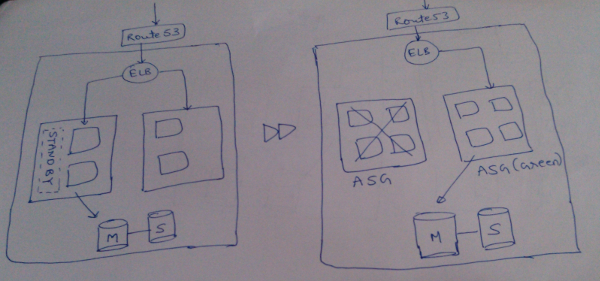 Route53
ELB
STANDBY
M
S
Route53
ELB
ASG
ASG (Green)
M
S